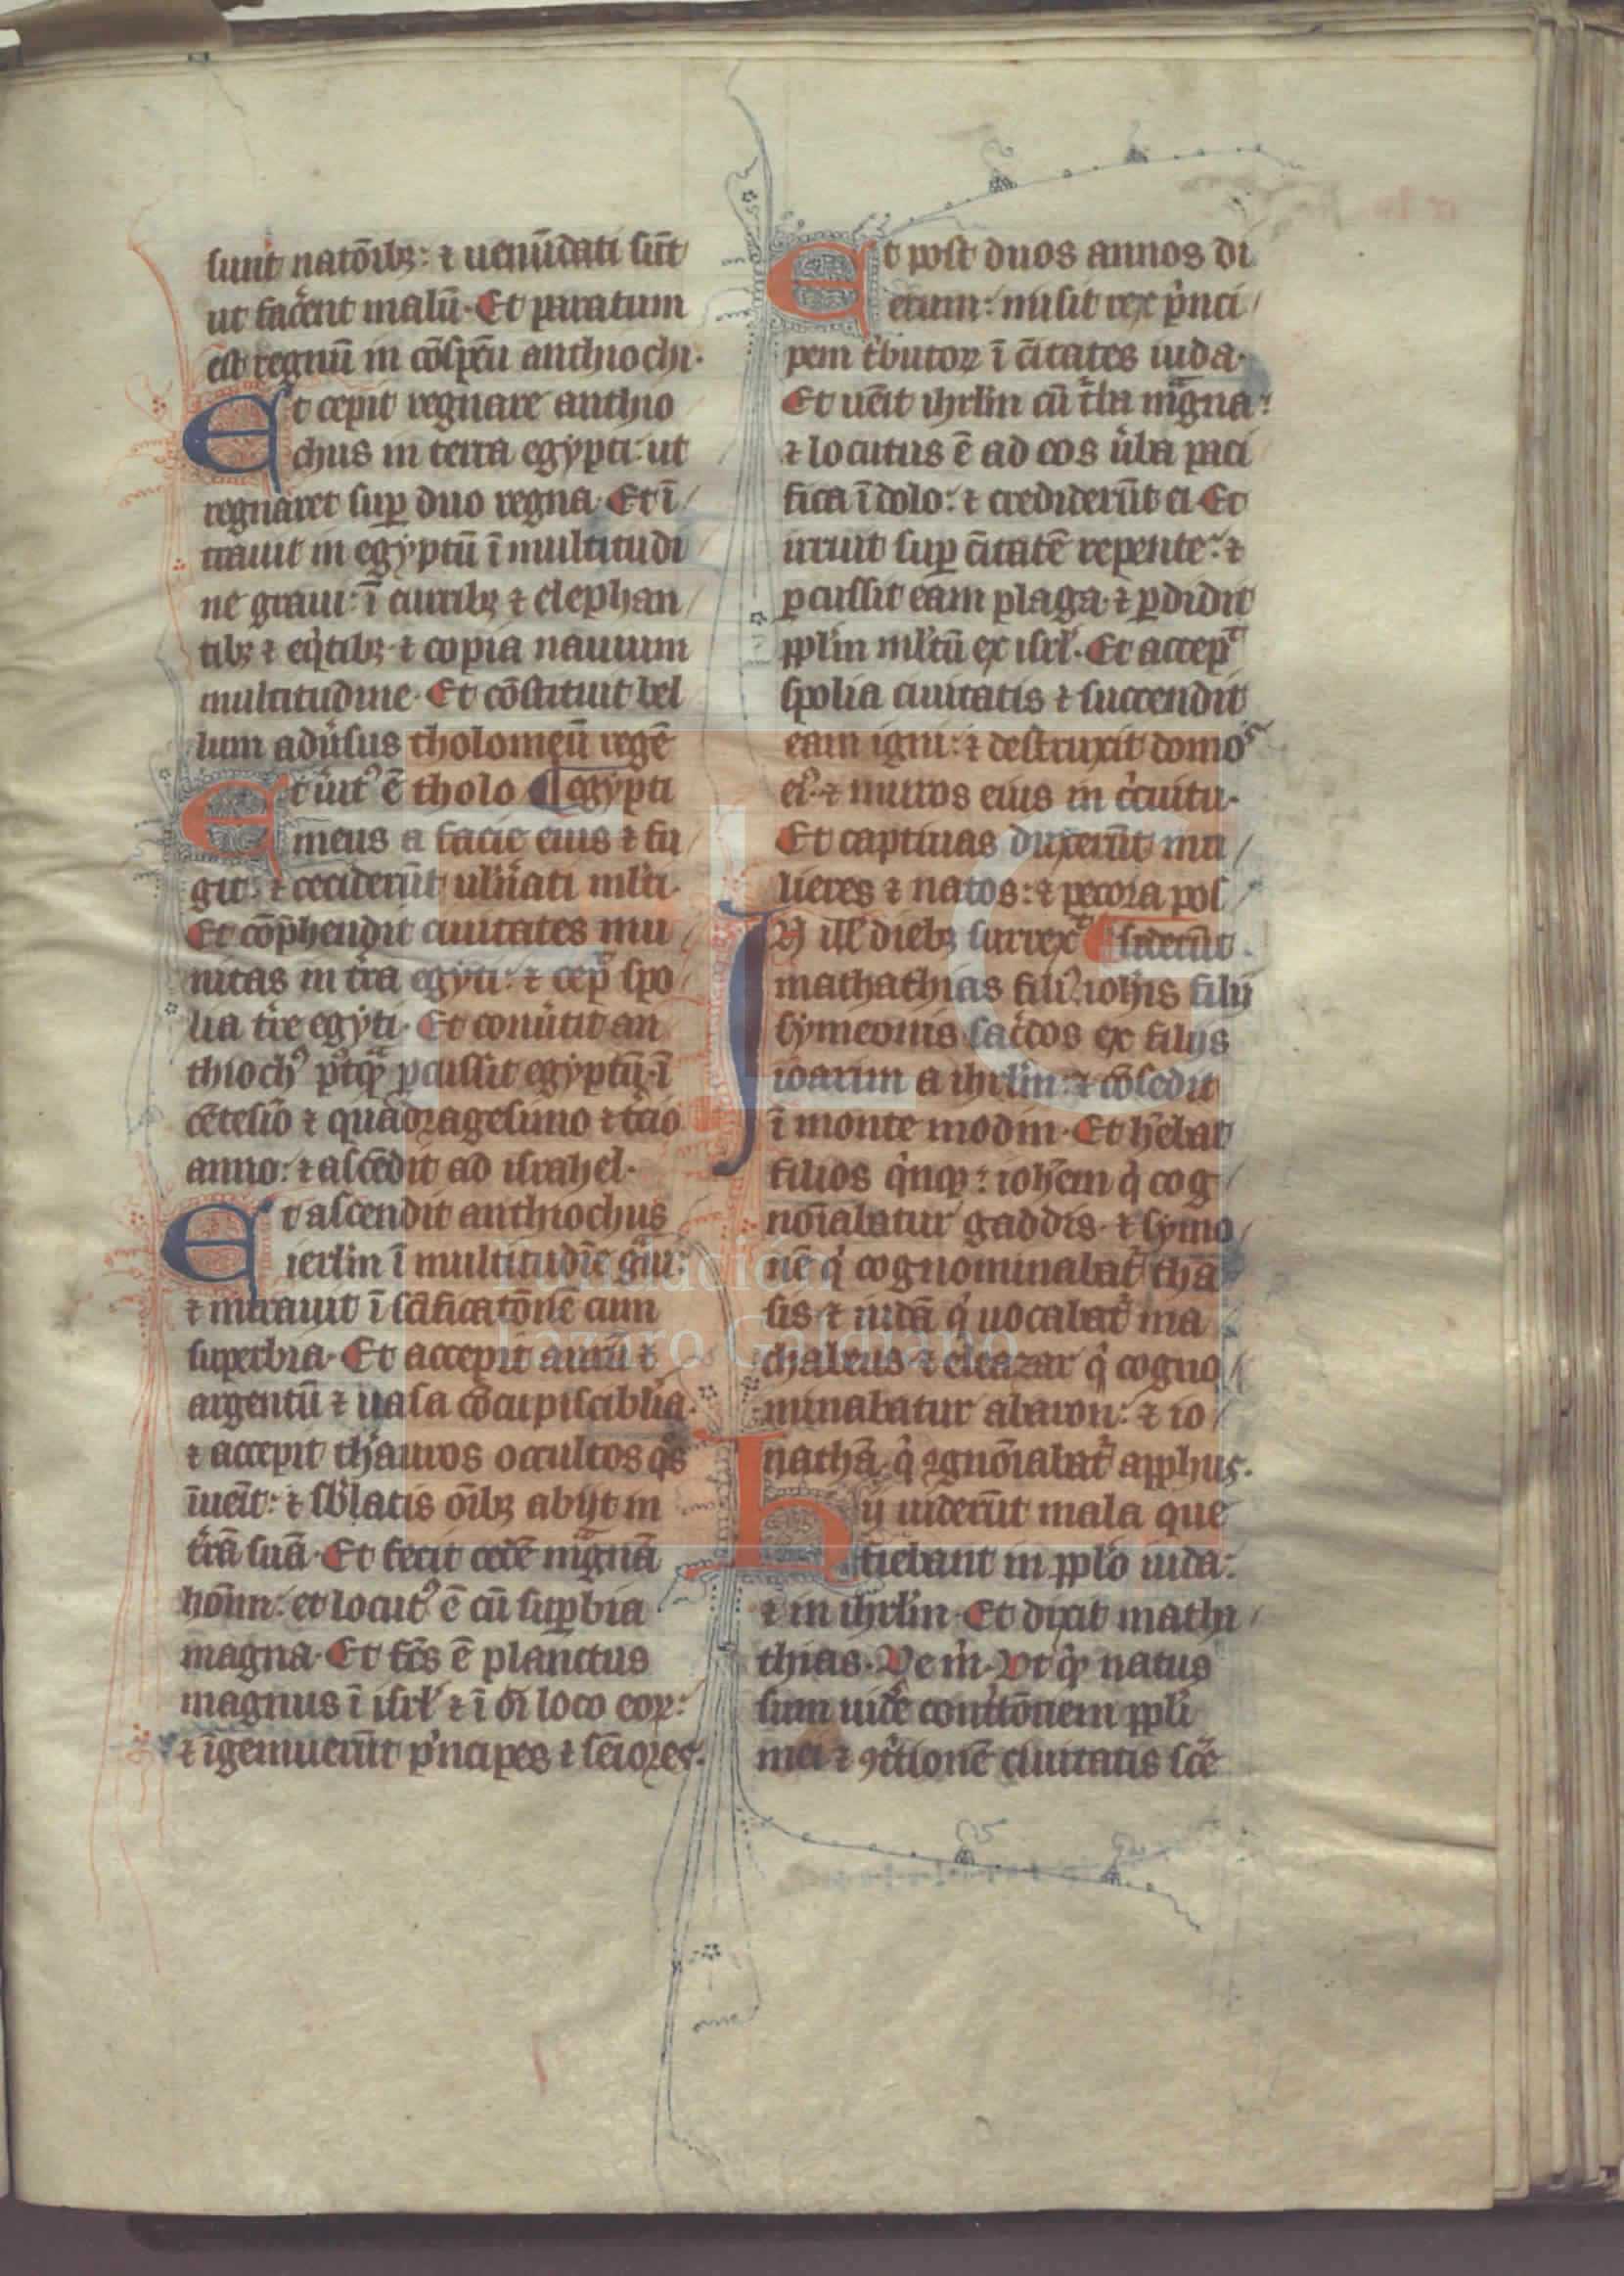 sunt natōibꝫ: ⁊ uenūdati sūt
ut facēnt malū. Et paratum
est regnū in cōspcū anthiochi.
Et cepit regnare anthio
chus in terra egypti: ut
regnaret suꝑ duo regna. Et ī
trauit in egyptū ī multitudi
ne graui: ī curribꝫ ⁊ elephan
tibꝫ ⁊ eq̇tibꝫ ⁊ copia nauium
multitudine. Et cōstituit bel
lum adūsus tholomeū regē
Et ūitꝰ ē tholo egypti
meus a facie eius ⁊ fu
git: ⁊ ceciderūt uln̄ati ml̄ti.
Et cōp̄hendit ciuitates mu
nitas in t̄ra egyti: ⁊ cep̄ spo
lia t̄re egyti. Et conūtit an
thiochꝰ pꝰtꝗ̄ ꝑcussit egyptū. ī
cētesīo ⁊ quadragesimo ⁊ t̄cio
anno: ⁊ ascēdit ad israhel.
Et ascendit anthiochus
ierl̄m ī multitudīe ḡui:
⁊ intrauit ī sc̄ificatōnē cum
superbia. Et accepit aurū ⁊
argentū ⁊ uasa cōcupiscibl̄ia.
⁊ accepit th̄auros occultos q̊s
īueīt: ⁊ sb̄latis oībꝫ abijt in
t̄rā suā. Et fecit cedē māgnā
hoīnn: et locutꝰ ē cū suꝑbia
magna. Et fc̄s ē planctus
magnus ī isrl̄ ⁊ ī oī loco eoꝝ:
⁊ īgemuerūt pⁱncipes ⁊ sēiores.
Et post duos annos di
erum: misit rex pⁱnci
pem tⁱbutoꝝ ī c̄itates iuda.
Et uēit ihrl̄m cū t̄ba māgna:
⁊ locutus ē ad eos ūba paci
fica ī dolo: ⁊ crediderūt ei. Et
irruit suꝑ c̄itatē repente: ⁊
ꝑcussit eam plaga ⁊ ꝑdidit
ppl̄m ml̄tū ex isrl̄. Et accepᵗ
spolia ciuitatis ⁊ succendit
eam igni: ⁊ destruxit domos
eiꝰ ⁊ muros eius in cⁱcuitu.
Et captiuas duxerūt mu
lieres ⁊ natos: ⁊ pecora pos
In ill̄ diebꝫ surrexᵗ siderūt.
mathathias filiꝰ ioh̄is filii
symeonis sac̄dos ex filijs
ioarim a ihrl̄m: ⁊ cōsedit
ī monte modin. Et h̄ebat
filios qⁱnꝗ: ioh̄em qⁱ cog
noīabatur gaddis. ⁊ symo
nē qⁱ cognominabatʳ tha
sis ⁊ iudā qⁱ uocabatʳ ma
chabeus ⁊ eleazar qⁱ cogno
minabatur abaron: ⁊ io
nathā qⁱ ꝯgnoīabatʳ apphus.
hij uiderūt mala que
fiebant in ppl̄o iuda:
⁊ in ihrl̄m. Et dixit matha
thias. Ve m̄. Vt qⁱd natus
sum uidē contⁱtōnem ppl̄i
mei ⁊ ꝯt̄tionē ciuitatis sc̄e
FLG
Fundación
Lázaro Galdiano